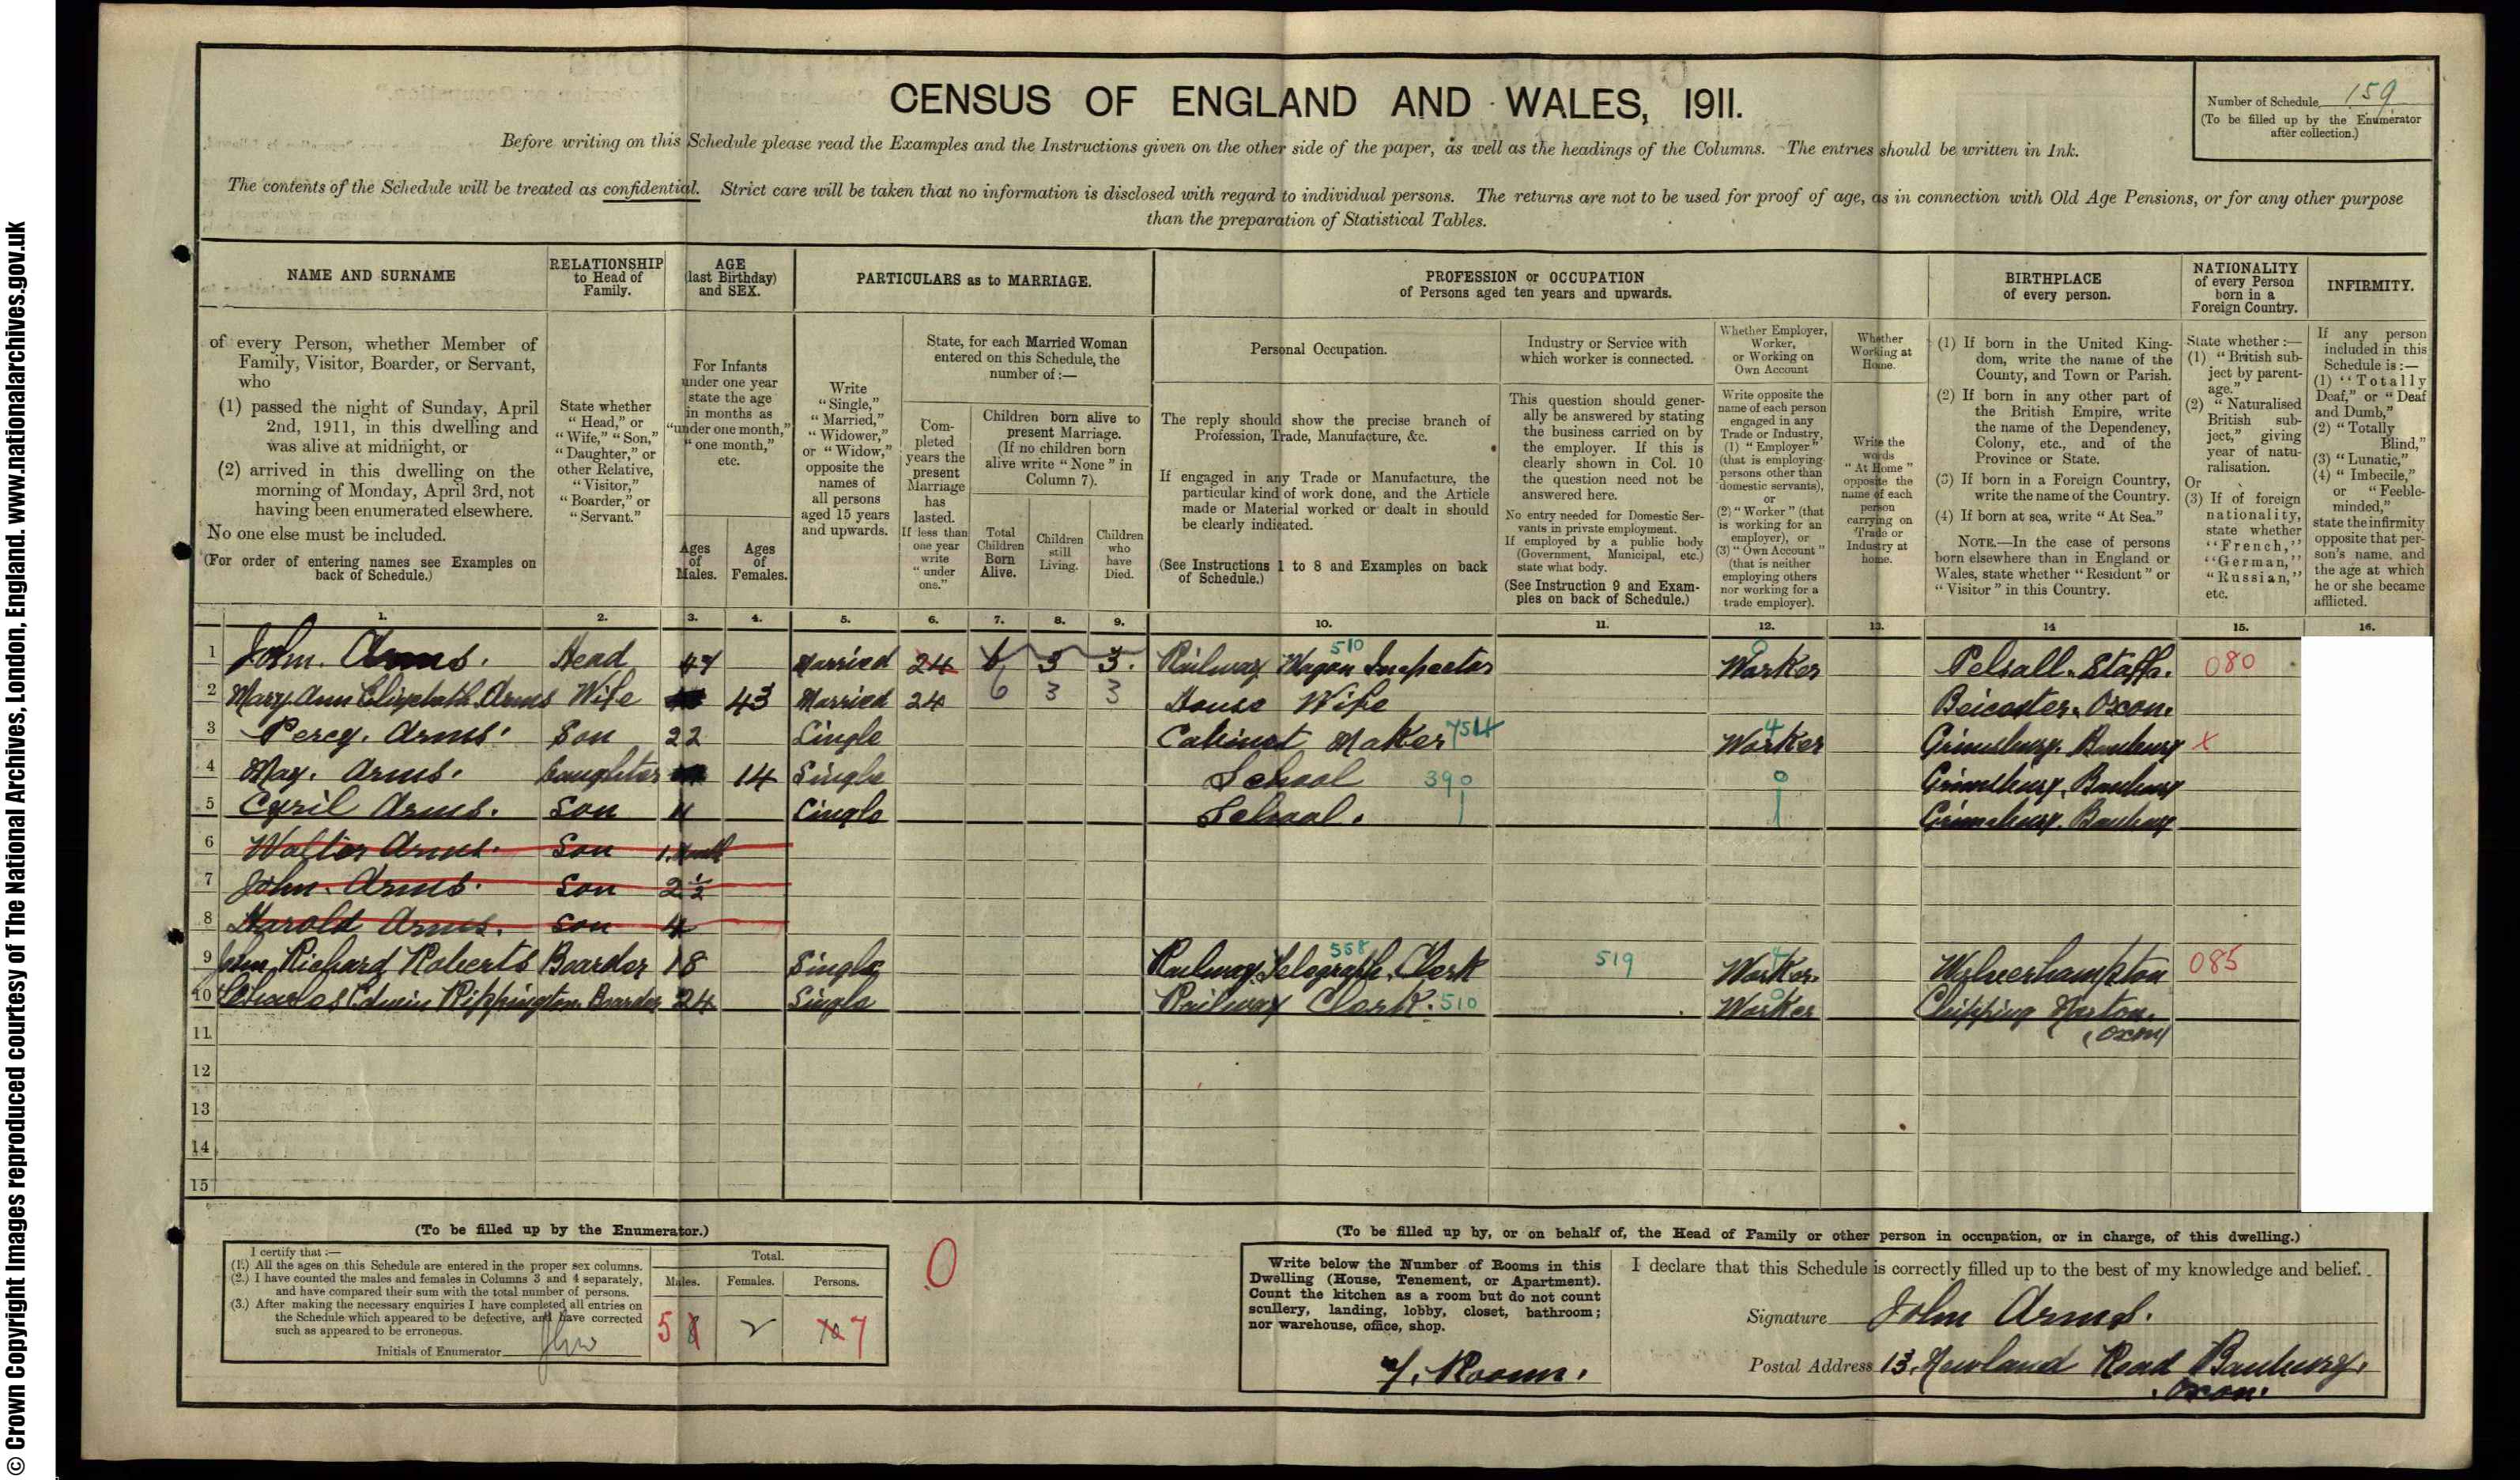 © Crown Copyright Images reproduced courtesy of The National Archives, London, England. www.nationalarchives.gov.uk
CENSUS OF ENGLAND AND WALES, 1911.
Number of Schedule 159
(To be filled up by the Enumerator
after collection.)
Before writing on this Schedule please read the Examples and the Instructions given on the other side of the paper, as well as the headings of the Columns. The entries should be written in Ink.
The contents of the Schedule will be treated as confidential. Strict care will be taken that no information is disclosed with regard to individual persons. The returns are not to be used for proof of age, as in connection with Old Age Pensions, or for any other purpose
than the preparation of Statistical Tables.
NAME AND SURNAME
of every Person, whether Member of
Family, Visitor, Boarder, or Servant,
who
(1) passed the night of Sunday, April
2nd, 1911, in this dwelling and
was alive at midnight, or
(2) arrived in this dwelling on the
morning of Monday, April 3rd, not
having been enumerated elsewhere.
No one else must be included.
(For order of entering names see Examples on
back of Schedule.)
RELATIONSHIP
to Head of
Family.
State whether
"Head," or
"Wife," "Son,"
"Daughter," or
other Relative,
"Visitor,"
"Boarder," or
"Servant."
AGE
(last Birthday)
and SEX.
For Infants
under one year
state the age
in months as
"under one month,"
"one month,"
etc.
Ages
of
Males.
Ages
of
Females.
PARTICULARS as to MARRIAGE.
Write
"Single,"
"Married,"
"Widower,"
or "Widow,"
opposite the
names of
all persons
aged 15 years
and upwards.
State, for each Married Woman
entered on this Schedule, the
number of:—
Com-
pleted
years the
present
Marriage
has
lasted.
If less than
one year
write
"under
one."
Children born alive to
present Marriage.
(If no children born
alive write "None" in
Column 7).
Total
Children
Born
Alive.
Children
still
Living.
Children
who
have
Died.
PROFESSION or OCCUPATION
of Persons aged ten years and upwards.
Personal Occupation.
The reply should show the precise branch of
Profession, Trade, Manufacture, &c.
If engaged in any Trade or Manufacture, the
particular kind of work done, and the Article
made or Material worked or dealt in should
be clearly indicated.
(See Instructions 1 to 8 and Examples on back
of Schedule.)
Industry or Service with
which worker is connected.
This question should gener-
ally be answered by stating
the business carried on by
the employer. If this is
clearly shown in Col. 10
the question need not be
answered here.
No entry needed for Domestic Ser-
vants in private employment.
If employed by a public body
(Government, Municipal, etc.)
state what body.
(See Instruction 9 and Exam-
ples on back of Schedule.)
Whether Employer,
Worker,
or Working on
Own Account
Write opposite the
name of each person
engaged in any
Trade or Industry,
(1) "Employer"
(that is employing
persons other than
domestic servants),
or
(2) "Worker" (that
is working for an
employer), or
(3) "Own Account"
(that is neither
employing others
nor working for a
trade employer).
Whether
Working at
Home.
Write the
words
"At Home"
opposite the
name of each
person
carrying on
Trade or
Industry at
home.
BIRTHPLACE
of every person.
(1) If born in the United King-
dom, write the name of the
County, and Town or Parish.
(2) If born in any other part of
the British Empire, write
the name of the Dependency,
Colony, etc., and of the
Province or State.
(3) If born in a Foreign Country,
write the name of the Country.
(4) If born at sea, write "At Sea."
NOTE.—In the case of persons
born elsewhere than in England or
Wales, state whether "Resident" or
"Visitor" in this Country.
NATIONALITY
of every Person
born in a
Foreign Country.
State whether:—
(1) "British sub-
ject by parent-
age."
(2) "Naturalised
British sub-
ject," giving
year of natu-
ralisation.
Or
(3) If of foreign
nationality,
state whether
"French,"
"German,"
"Russian,"
etc.
INFIRMITY.
If any person
included in this
Schedule is:—
(1) "Totally
Deaf," or "Deaf
and Dumb,"
(2) "Totally
Blind,"
(3) "Lunatic,"
(4) "Imbecile,"
or "Feeble-
minded,"
state the infirmity
opposite that per-
son's name, and
the age at which
he or she became
afflicted.
1. 2. 3. 4. 5. 6. 7. 8. 9. 10. 11. 12. 13. 14 15. 16.
1 John. Arms. Head 47 Married 24 6 3 3. Railway Wagon Inspector 510 Worker 0 Pelsall. Staffs. 080
2 Mary Ann Elizabeth Arms Wife 43 Married 24 6 3 3 House Wife Beicester. Oxon.
3 Percy. Arms. Son 22 Single Cabinet Maker 7514 Worker 4 Grimsbury. Banbury x
4 May. Arms. Daughter 14 Single School 390 0 Grimsbury. Banbury
5 Cyril Arms. Son 11 Single School. Grimsbury. Banbury
6 Walter Arms. Son 1. Month
7 John. Arms. Son 2½
8 Harold Arms. Son 4
9 John Richard Roberts Boarder 18 Single Railway. Telegraph. Clerk 558 519 Worker. 4 Wolverhampton 085
10 Charles Edwin Rippington. Boarder 24 Single Railway Clerk. 510 Worker 0 Chipping Norton.
(Oxon)
11
12
13
14
15
(To be filled up by the Enumerator.)
I certify that:—
(1.) All the ages on this Schedule are entered in the proper sex columns.
(2.) I have counted the males and females in Columns 3 and 4 separately,
and have compared their sum with the total number of persons.
(3.) After making the necessary enquiries I have completed all entries on
the Schedule which appeared to be defective, and have corrected
such as appeared to be erroneous.
Initials of Enumerator
Total.
Males. Females. Persons.
5 8 2 10 7
0
(To be filled up by, or on behalf of, the Head of Family or other person in occupation, or in charge, of this dwelling.)
Write below the Number of Rooms in this
Dwelling (House, Tenement, or Apartment).
Count the kitchen as a room but do not count
scullery, landing, lobby, closet, bathroom;
nor warehouse, office, shop.
Rooms.
I declare that this Schedule is correctly filled up to the best of my knowledge and belief.
Signature John Arms.
Postal Address 13. Newland Road Banbury.
Oxon.